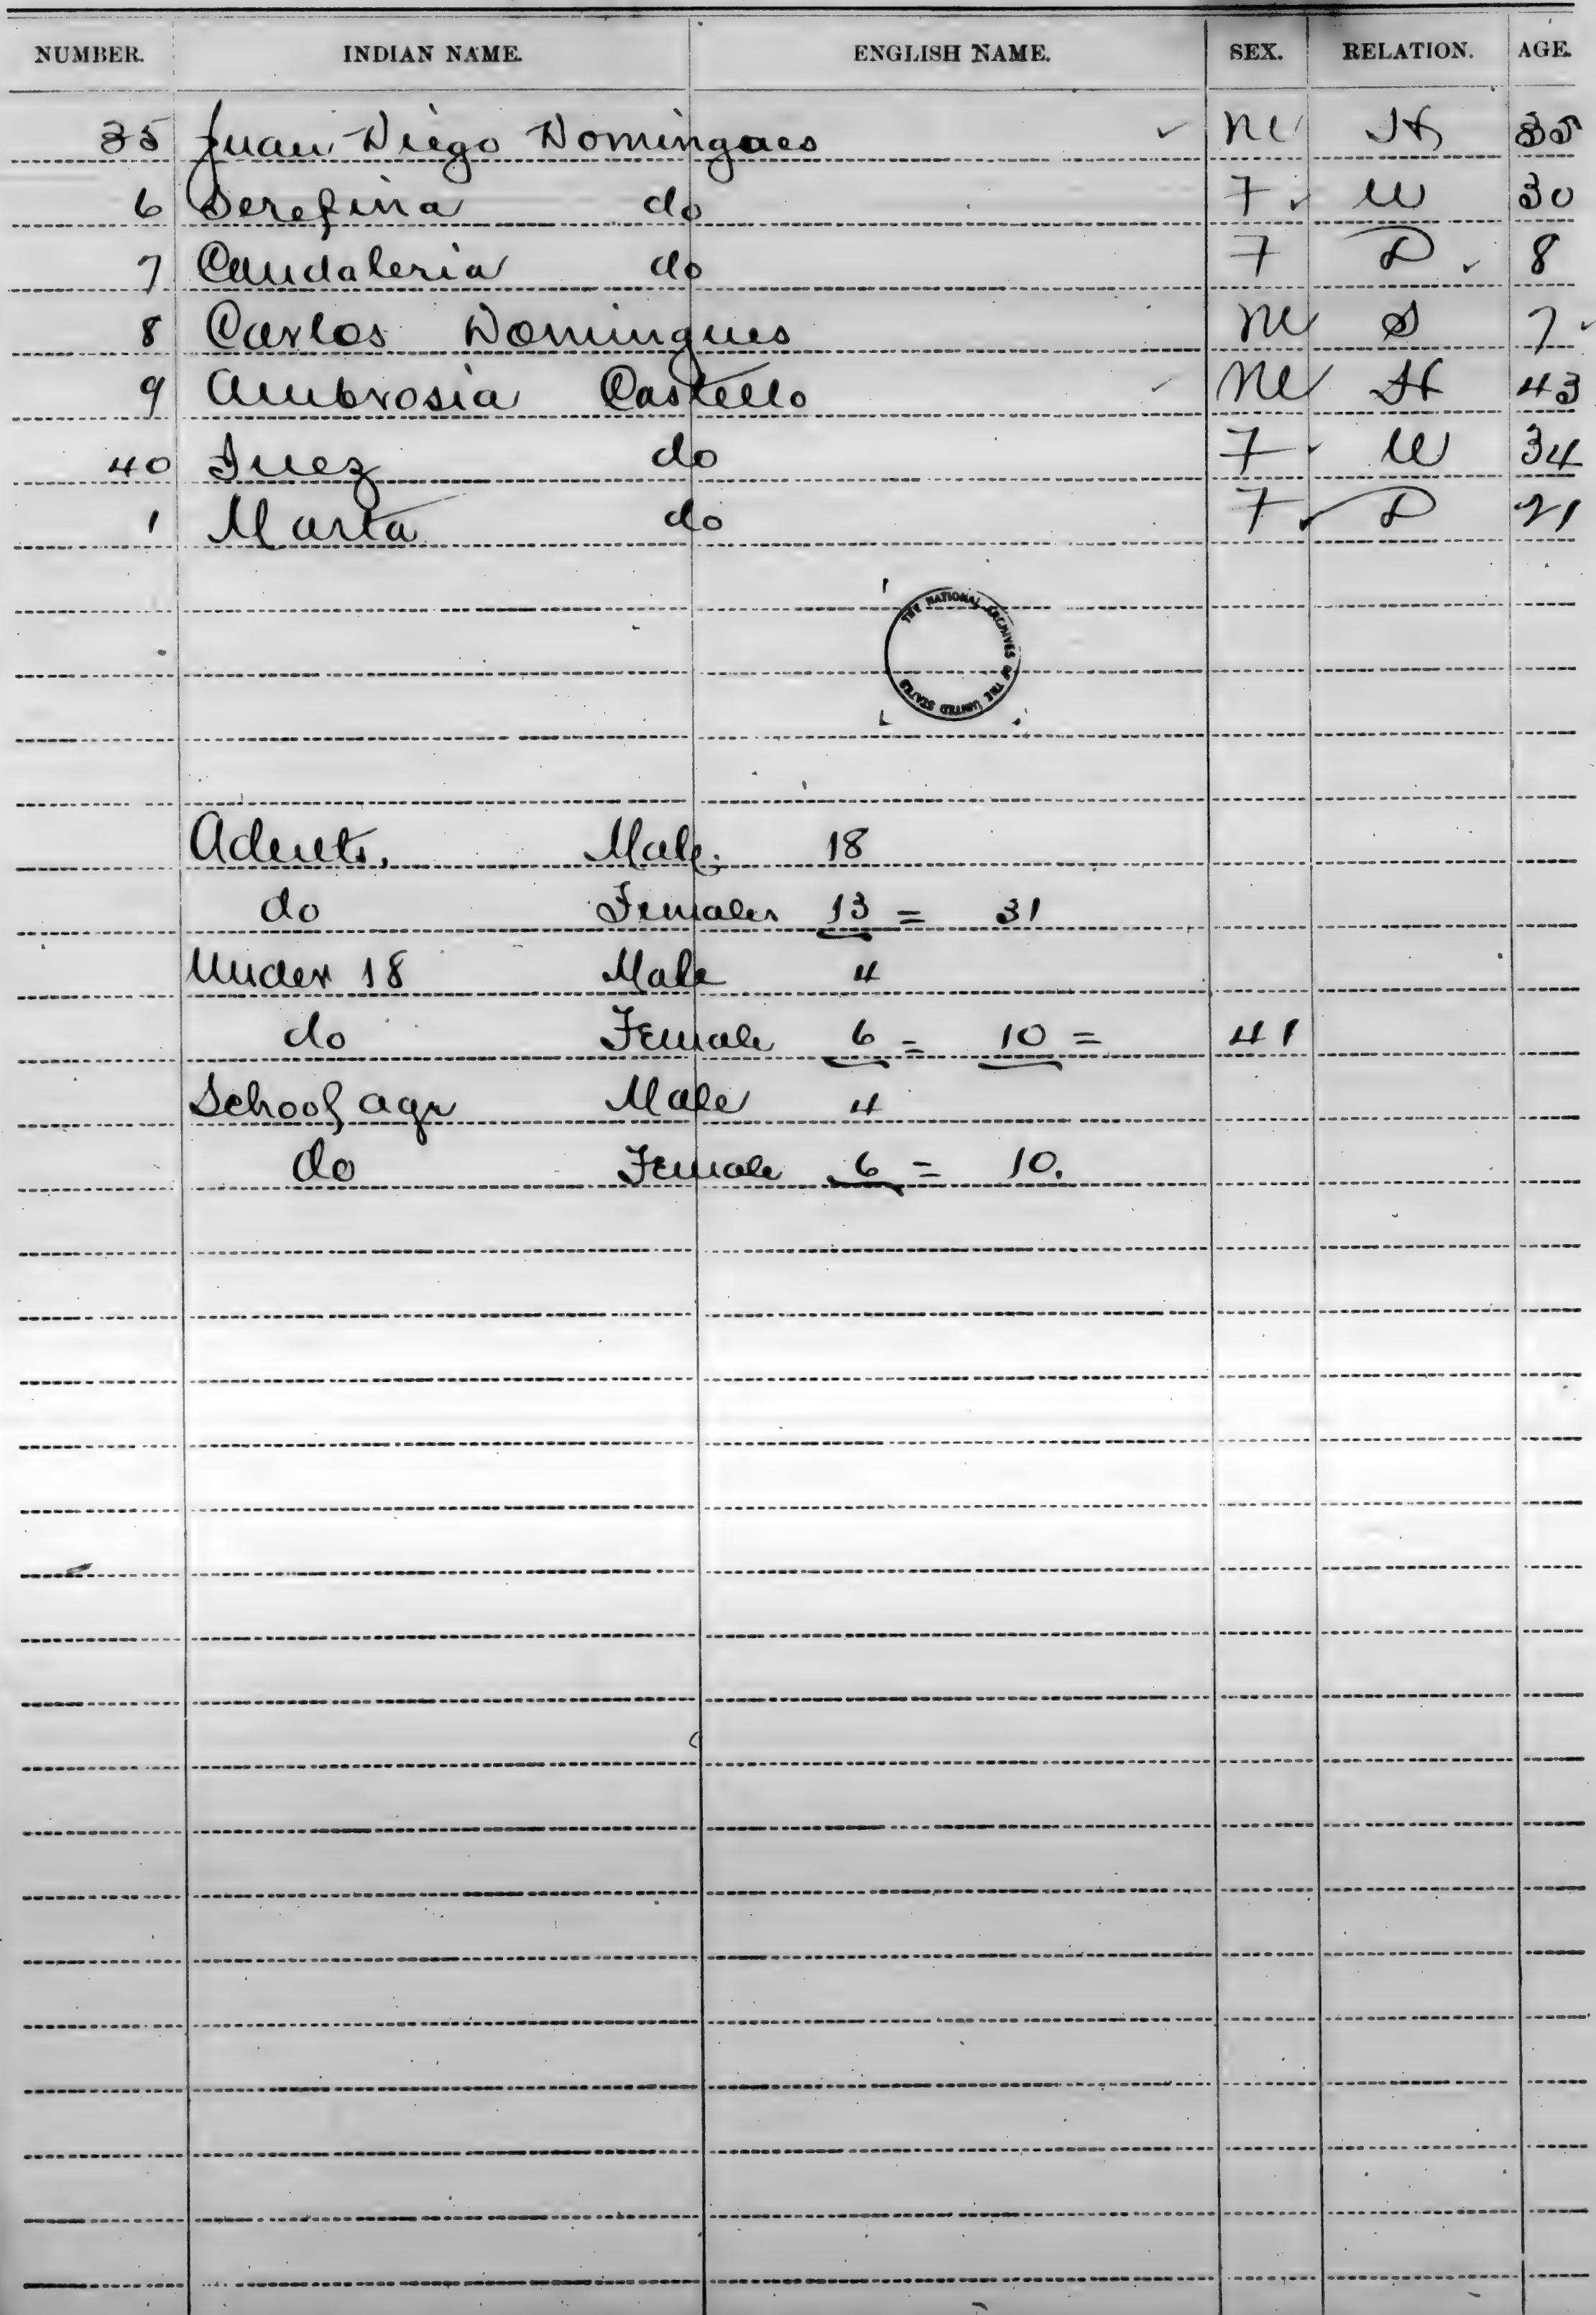 NUMBER. INDIAN NAME. ENGLISH NAME. SEX. RELATION. AGE.
35 Juan Diego Domingues M H 35
6 Serefina do F W 30
7 Candaleria do F D 8
8 Carlos Domingues M S 7
9 Ambrosia Castello M H 43
40 Inez do F W 34
1 Marta do F D 21
THE NATIONAL ARCHIVES OF THE UNITED STATES
Adults. Male. 18
do Females 13 = 31
Under 18 Male 4
do Female 6 = 10 = 41
School age Male 4
do Female 6 = 10.